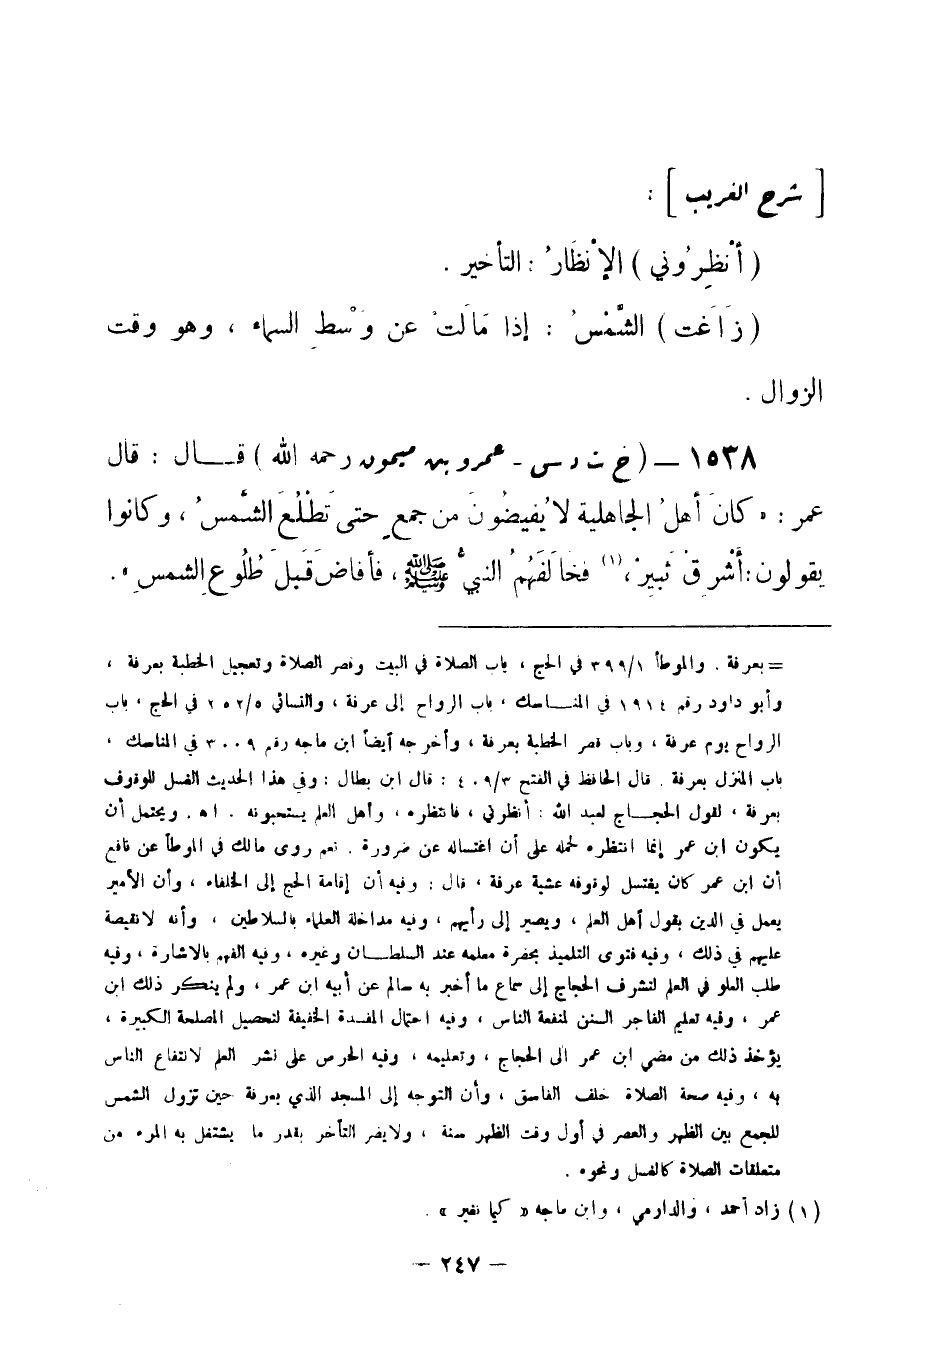 [ شرح الغريب ] :
( أنْظِرُوني ) الإنْظَارُ : التأخير .
( زَاغَت ) الشَّمْسُ : إذا مَالَتْ عن وَسْطِ السماء ، وهو وقت
الزوال .
١٥٣٨ – ( خ ت د س - عمرو بن ميمون رحمه الله ) قــال : قال
عمر : « كانَ أهلُ الجاهلية لا يُفيضُونَ من جمعٍ حتى تَطْلُعَ الشَّمسُ ، وكانوا
يقولون : أَشْرِقْ ثَبيرْ ،(١) فخالَفَهُمُ النبيُّ ﷺ ، فأفاضَ قَبلَ طُلُوعِ الشمسِ » .
= بعرفة . والموطأ ٣٩٩/١ في الحج ، باب الصلاة في البيت وقصر الصلاة وتعجيل الخطبة بعرفة ،
وأبو داود رقم ١٩١٤ في المنــاسك ، باب الرواح إلى عرفة ، والنسائي ٢٥٢/٥ في الحج ، باب
الرواح يوم عرفة ، وباب قصر الخطبة بعرفة ، وأخرجه أيضاً ابن ماجه رقم ٣٠٠٩ في المناسك ،
باب المنزل بعرفة . قال الحافظ في الفتح ٤٠٩/٣ : قال ابن بطال : وفي هذا الحديث الغسل للوقوف
بعرفة ، لقول الحجــاج لعبد الله : أنظرني ، فانتظره ، وأهل العلم يستحبونه . اه . ويحتمل أن
يكون ابن عمر إنما انتظره لحمله على أن اغتساله عن ضرورة . نعم روى مالك في الموطأ عن نافع
أن ابن عمر كان يغتسل لوقوفه عشية عرفة ، قال : وفيه أن إقامة الحج إلى الخلفاء ، وأن الأمير
يعمل في الدين بقول أهل العلم ، ويصير إلى رأيهم ، وفيه مداخلة العلماء بالسلاطين ، وأنه لا نقيصة
عليهم في ذلك ، وفيه فتوى التلميذ بحضرة معلمه عند السلطــان وغيره ، وفيه الفهم بالاشارة ، وفيه
طلب العلو في العلم لتشرف الحجاج إلى سماع ما أخبر به سالم عن أبيه ابن عمر ، ولم ينكر ذلك ابن
عمر ، وفيه تعليم الفاجر السنن لمنفعة الناس ، وفيه احتمال المفسدة الخفيفة لتحصيل المصلحة الكبيرة ،
يؤخذ ذلك من مضي ابن عمر الى الحجاج ، وتعليمه ، وفيه الحرص على نشر العلم لانتفاع الناس
به ، وفيه صحة الصلاة خلف الفاسق ، وأن التوجه إلى المسجد الذي بعرفة حين تزول الشمس
للجمع بين الظهر والعصر في أول وقت الظهر سنة ، ولا يضر التأخر بقدر ما يشتغل به المرء من
متعلقات الصلاة كالغسل ونحوه .
(١) زاد أحمد ، والدارمي ، وابن ماجه « كيما نغير » .
– ٢٤٧ –